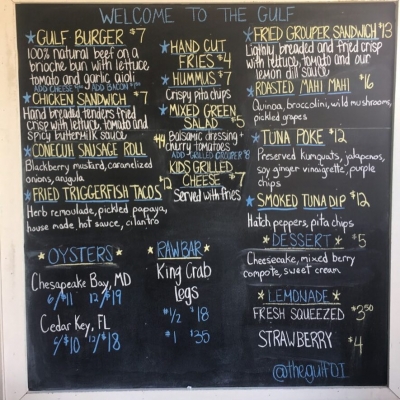 WELCOME TO THE GULF
GULF BURGER $7
100% natural beef on a
brioche bun with lettuce,
tomato and garlic aioli
ADD CHEESE ADD BACON
CHICKEN SANDWICH $7
Hand breaded tenders fried
crisp with lettuce, tomato and
spicy buttermilk sauce
CONECUH SAUSAGE ROLL $9
Blackberry mustard, caramelized
onions, arugula
FRIED TRIGGERFISH TACOS $12
Herb remoulade, pickled papaya,
house made, hot sauce, cilantro
OYSTERS
Chesapeake Bay, MD
6/$11 12/$19
Cedar Key, FL
6/$10 12/$18
HAND CUT
FRIES $4
HUMMUS $7
Crispy pita chips
MIXED GREEN
SALAD $5
Balsamic dressing +
cherry tomatoes
ADD-GRILLED GROUPER $8
KIDS GRILLED
CHEESE $7
Served with fries
RAW BAR
King Crab
legs
#1/2 $18
#1 $35
FRIED GROUPER SANDWICH $13
Lightly breaded and fried crisp
with lettuce, tomato and our
lemon dill sauce
ROASTED MAHI MAHI $16
Quinoa, broccolini, wild mushrooms,
pickled grapes
TUNA POKE $12
Preserved kumquats, jalapenos,
soy ginger vinaigrette, purple
chips
SMOKED TUNA DIP $12
Hatch peppers, pita chips
DESSERT $5
Cheesecake, mixed berry
compote, sweet cream
LEMONADE
FRESH SQUEEZED $3.50
STRAWBERRY $4
@thegulfOI